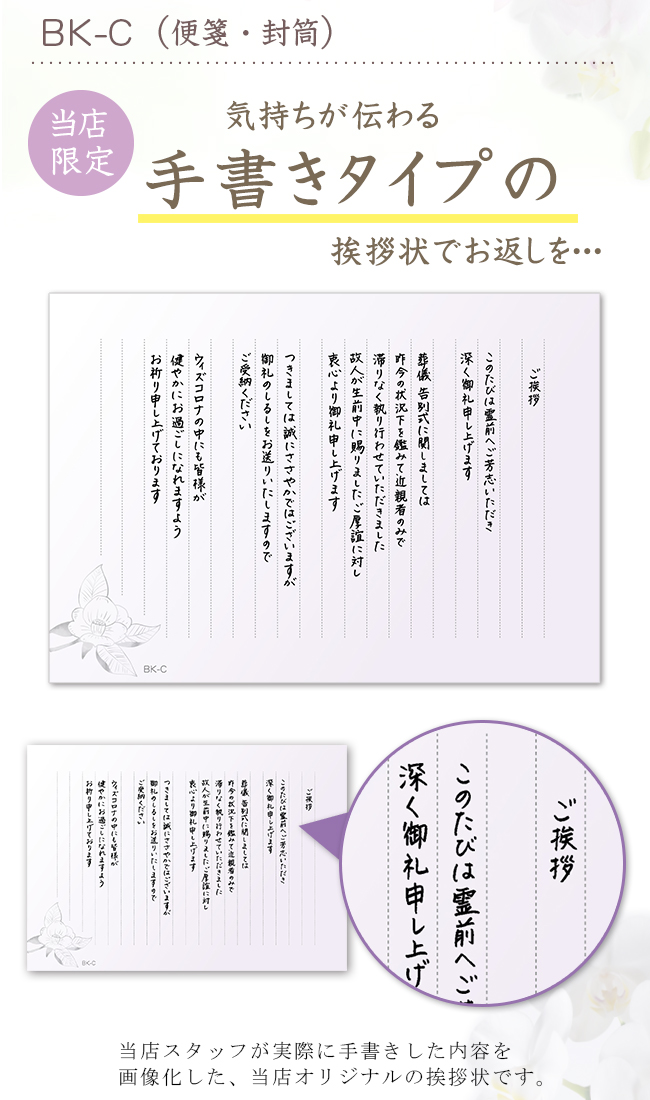 BK-C（便箋・封筒）
当店
限定
気持ちが伝わる
手書きタイプの
挨拶状でお返しを…
ご挨拶
このたびは霊前へご芳志いただき
深く御礼申し上げます
葬儀 告別式に関しましては
昨今の状況下を鑑みて近親者のみで
滞りなく執り行わせていただきました
故人が生前中に賜りましたご厚誼に対し
衷心より御礼申し上げます
つきましては誠にささやかではございますが
御礼のしるしをお送りいたしますので
ご受納ください
ウィズコロナの中にも皆様が
健やかにお過ごしになれますよう
お祈り申し上げております
BK-C
ご挨拶
このたびは霊前へご芳志いただき
深く御礼申し上げます
葬儀 告別式に関しましては
昨今の状況下を鑑みて近親者のみで
滞りなく執り行わせていただきました
故人が生前中に賜りましたご厚誼に対し
衷心より御礼申し上げます
つきましては誠にささやかではございますが
御礼のしるしをお送りいたしますので
ご受納ください
ウィズコロナの中にも皆様が
健やかにお過ごしになれますよう
お祈り申し上げております
BK-C
ご挨拶
このたびは霊前へご
深く御礼申し上げ
当店スタッフが実際に手書きした内容を
画像化した、当店オリジナルの挨拶状です。